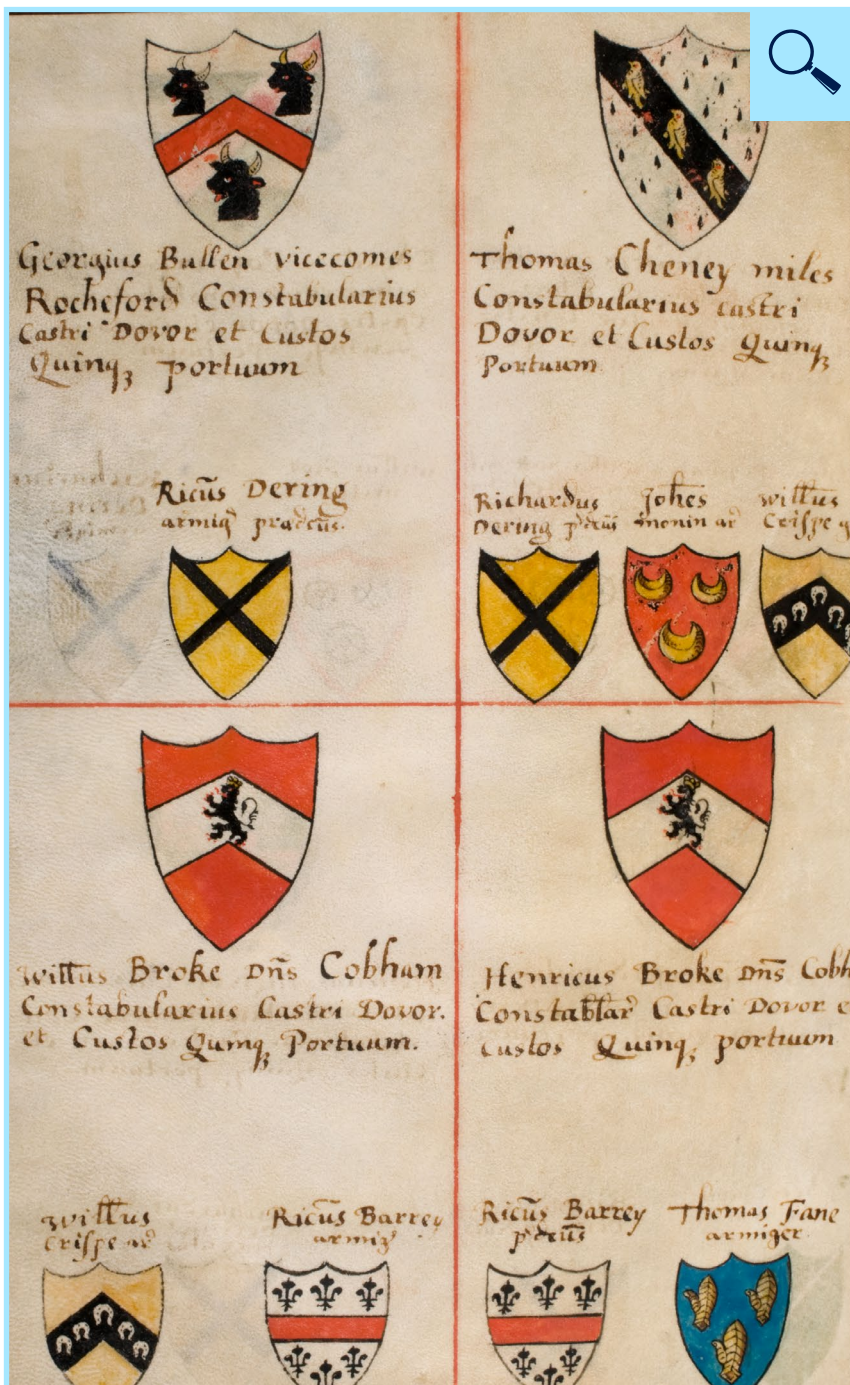 Georgius Bullen vicecomes
Rocheford Constabularius
Castri Dovor et Custos
Quinqꝫ portuum
Ricūs Dering
armigꝰ
Thomas Cheney miles
Constabularius castri
Dovor et Custos Quinqꝫ
Portuum
Richardus
Dering
Johēs
monin ar
willūs
Crispe
willūs Broke Dn̄s Cobham
Constabularius Castri Dovor.
et Custos Quinqꝫ Portuum.
willūs
Crispe ar
Ricūs Barrey
armigꝰ
Henricus Broke Dn̄s Cobh
Castri Dovor e
Custos Quinqꝫ portuum
Ricūs Barrey
Thomas Fane
armiger